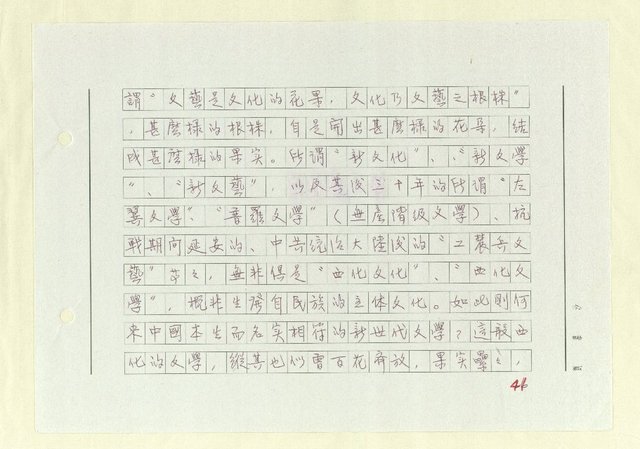 謂“文藝是文化的花果，文化乃文藝之根株”
，甚麼樣的根株，自是開出甚麼樣的花朵，結
成甚麼樣的果实。所謂“新文化”、“新文學
”、“新文藝”，以及其後三十年的所謂“左
翼文學”、“普羅文學”（無產階級文學）、抗
戰期間延安的、中共統治大陸後的“工農兵文
藝”等等，無非俱是“西化文化”、“西化文
學”，概非生發自民族的主体文化。如此則何
來中國本生而名实相符的新世代文學？這般西
化的文學，縱其也似曾百花齊放，果实纍纍，
46